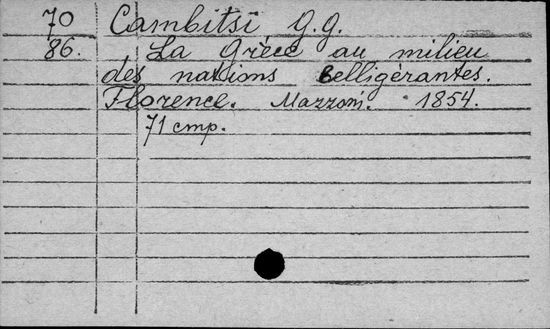 70 Cambitsi G. G.
86. La Grèce au milieu
des nations Belligérantes.
Florence. Mazzoni. 1854.
71 стр.